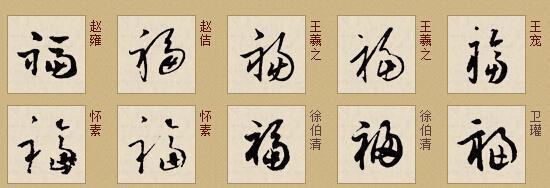 福 赵雍
福 赵佶
福 王羲之
福 王羲之
福 王宠
福 怀素
福 怀素
福 徐伯清
福 徐伯清
福 卫瓘